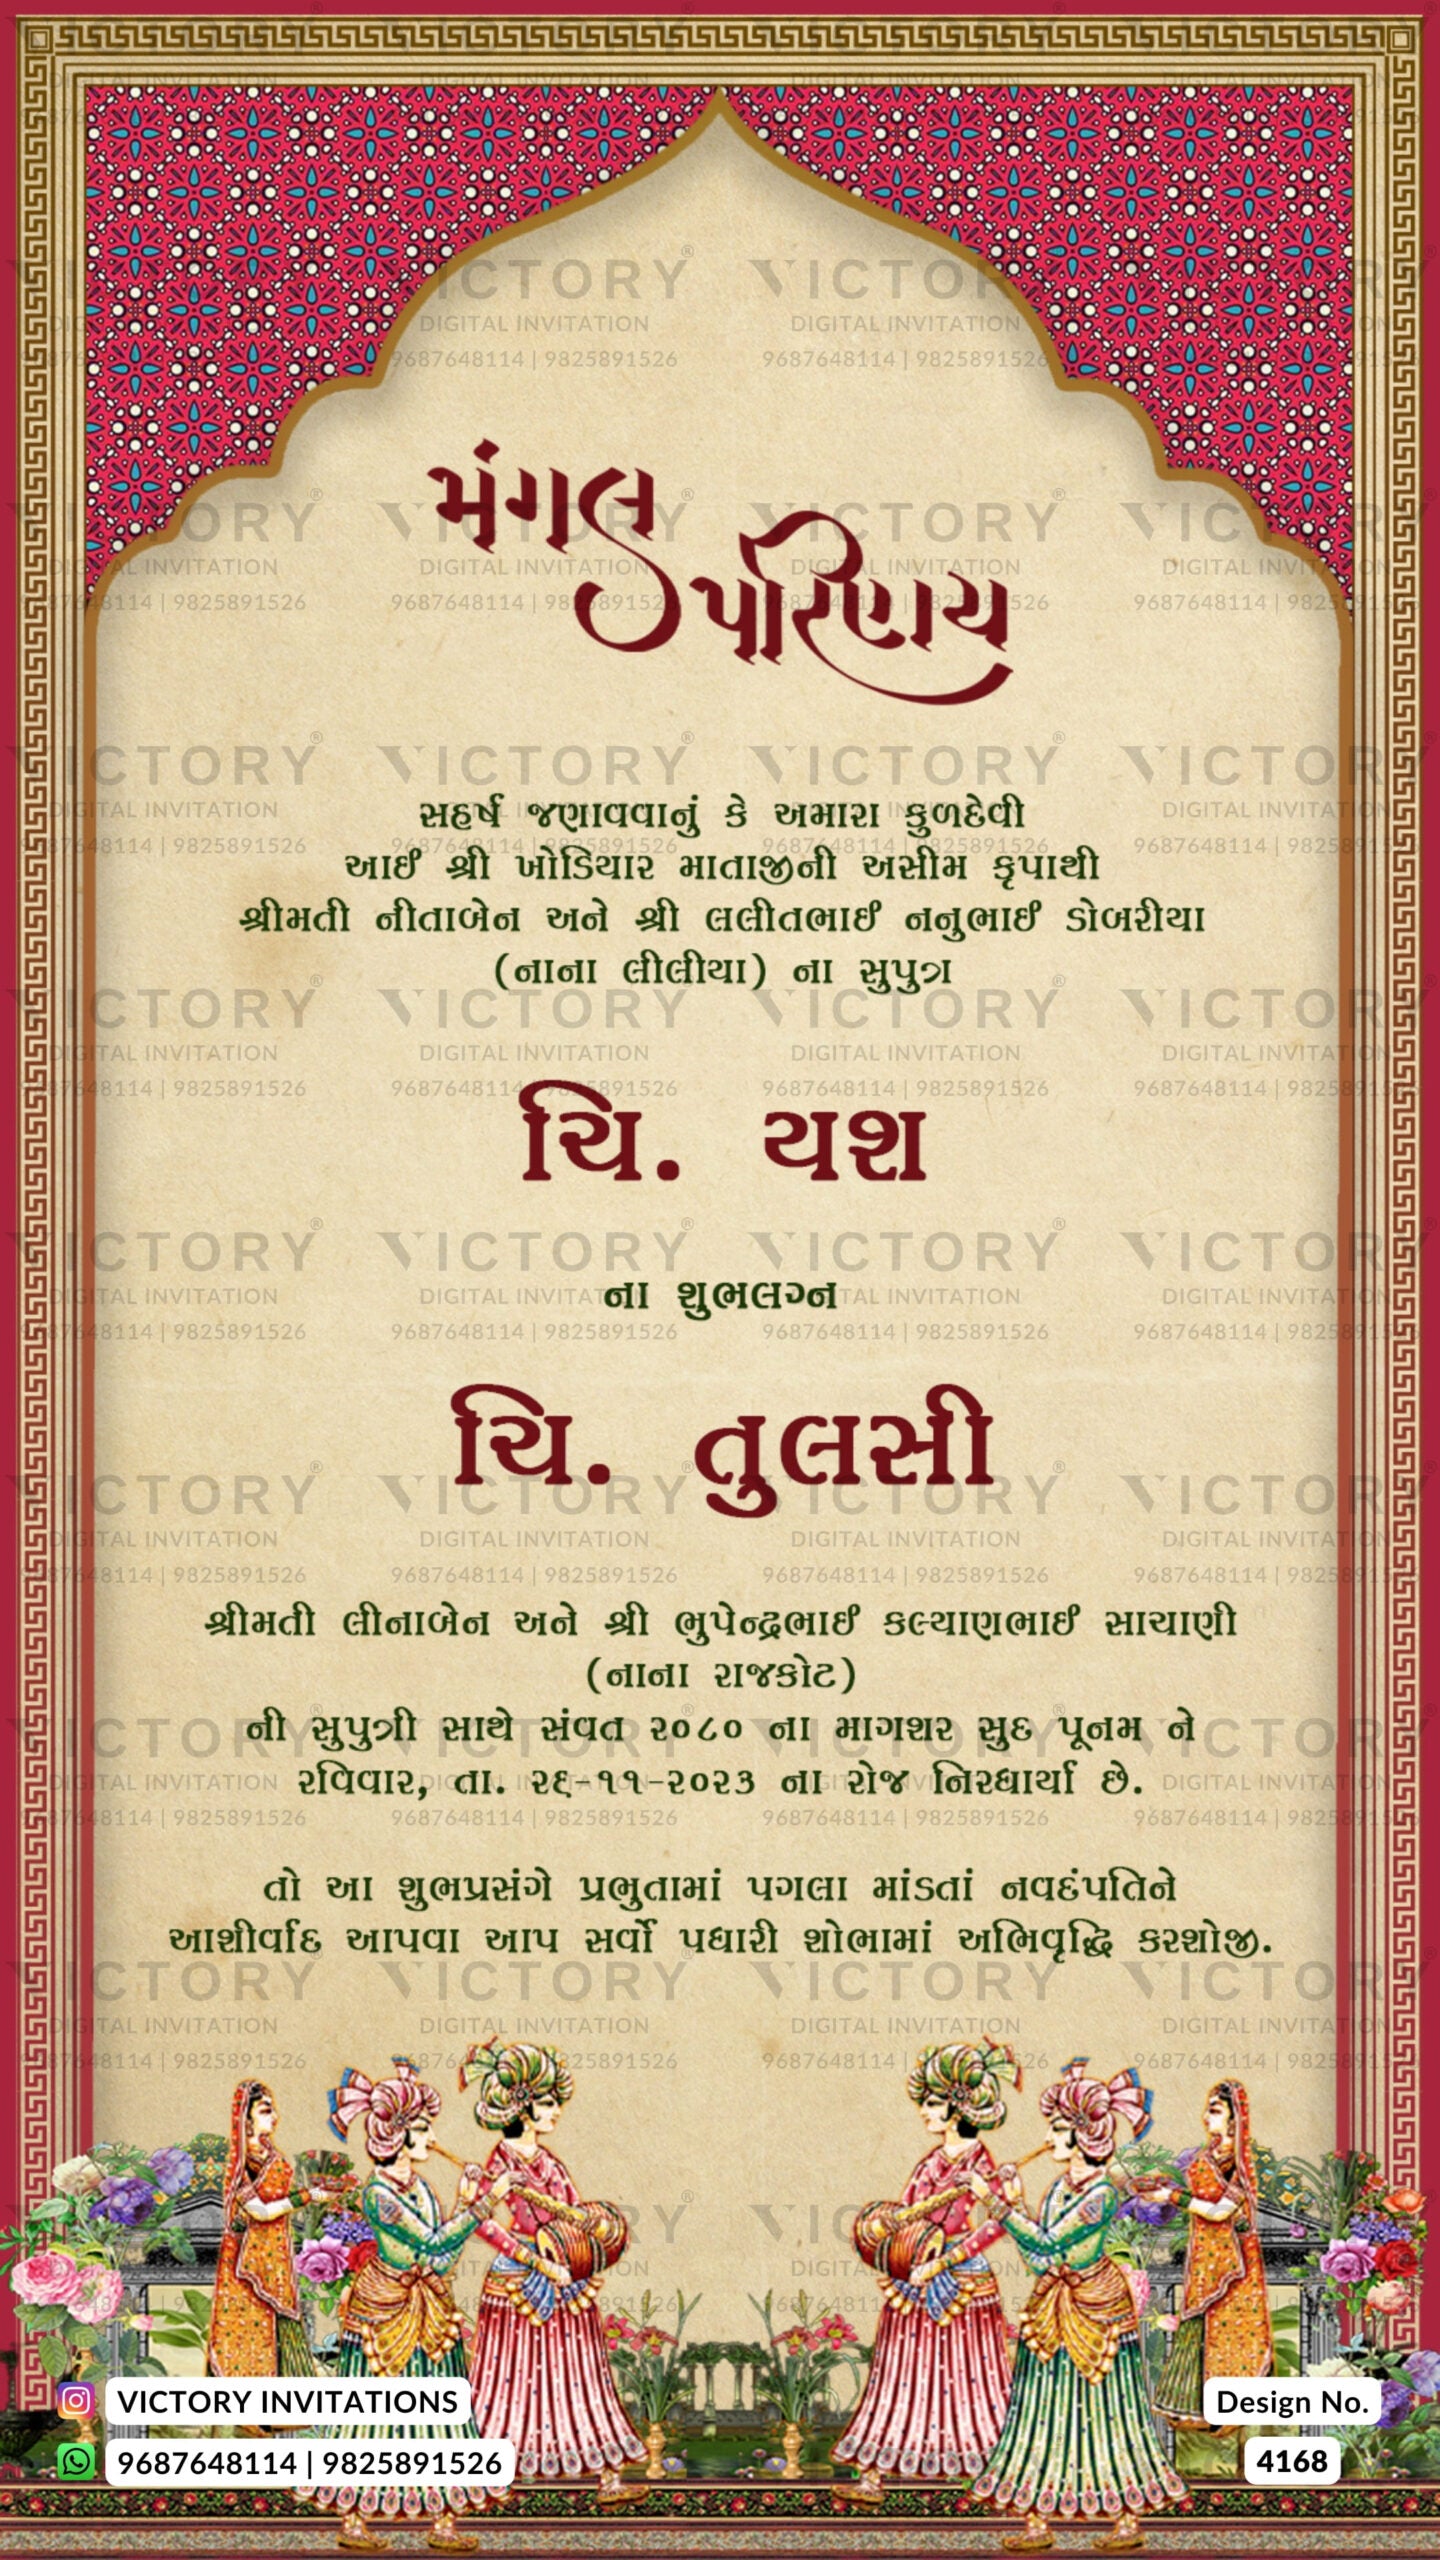 મંગલ
પરિણય
સહર્ષ જણાવવાનું કે અમારા કુળદેવી
આઈ શ્રી ખોડિયાર માતાજીની અસીમ કૃપાથી
શ્રીમતી નીતાબેન અને શ્રી લલીતભાઈ નનુભાઈ ડોબરીયા
(નાના લીલીયા) ના સુપુત્ર
ચિ. યશ
ના શુભલગ્ન
ચિ. તુલસી
શ્રીમતી લીનાબેન અને શ્રી ભુપેન્દ્રભાઈ કલ્યાણભાઈ સાચાણી
(નાના રાજકોટ)
ની સુપુત્રી સાથે સંવત ૨૦૮૦ ના માગશર સુદ પૂનમ ને
રવિવાર, તા. ૨૬-૧૧-૨૦૨૩ ના રોજ નિરધાર્યા છે.
તો આ શુભપ્રસંગે પ્રભુતામાં પગલા માંડતાં નવદંપતિને
આશીર્વાદ આપવા આપ સર્વો પધારી શોભામાં અભિવૃદ્ધિ કરશોજી.
VICTORY INVITATIONS
9687648114 | 9825891526
Design No.
4168
VICTORY®
DIGITAL INVITATION
9687648114 | 9825891526